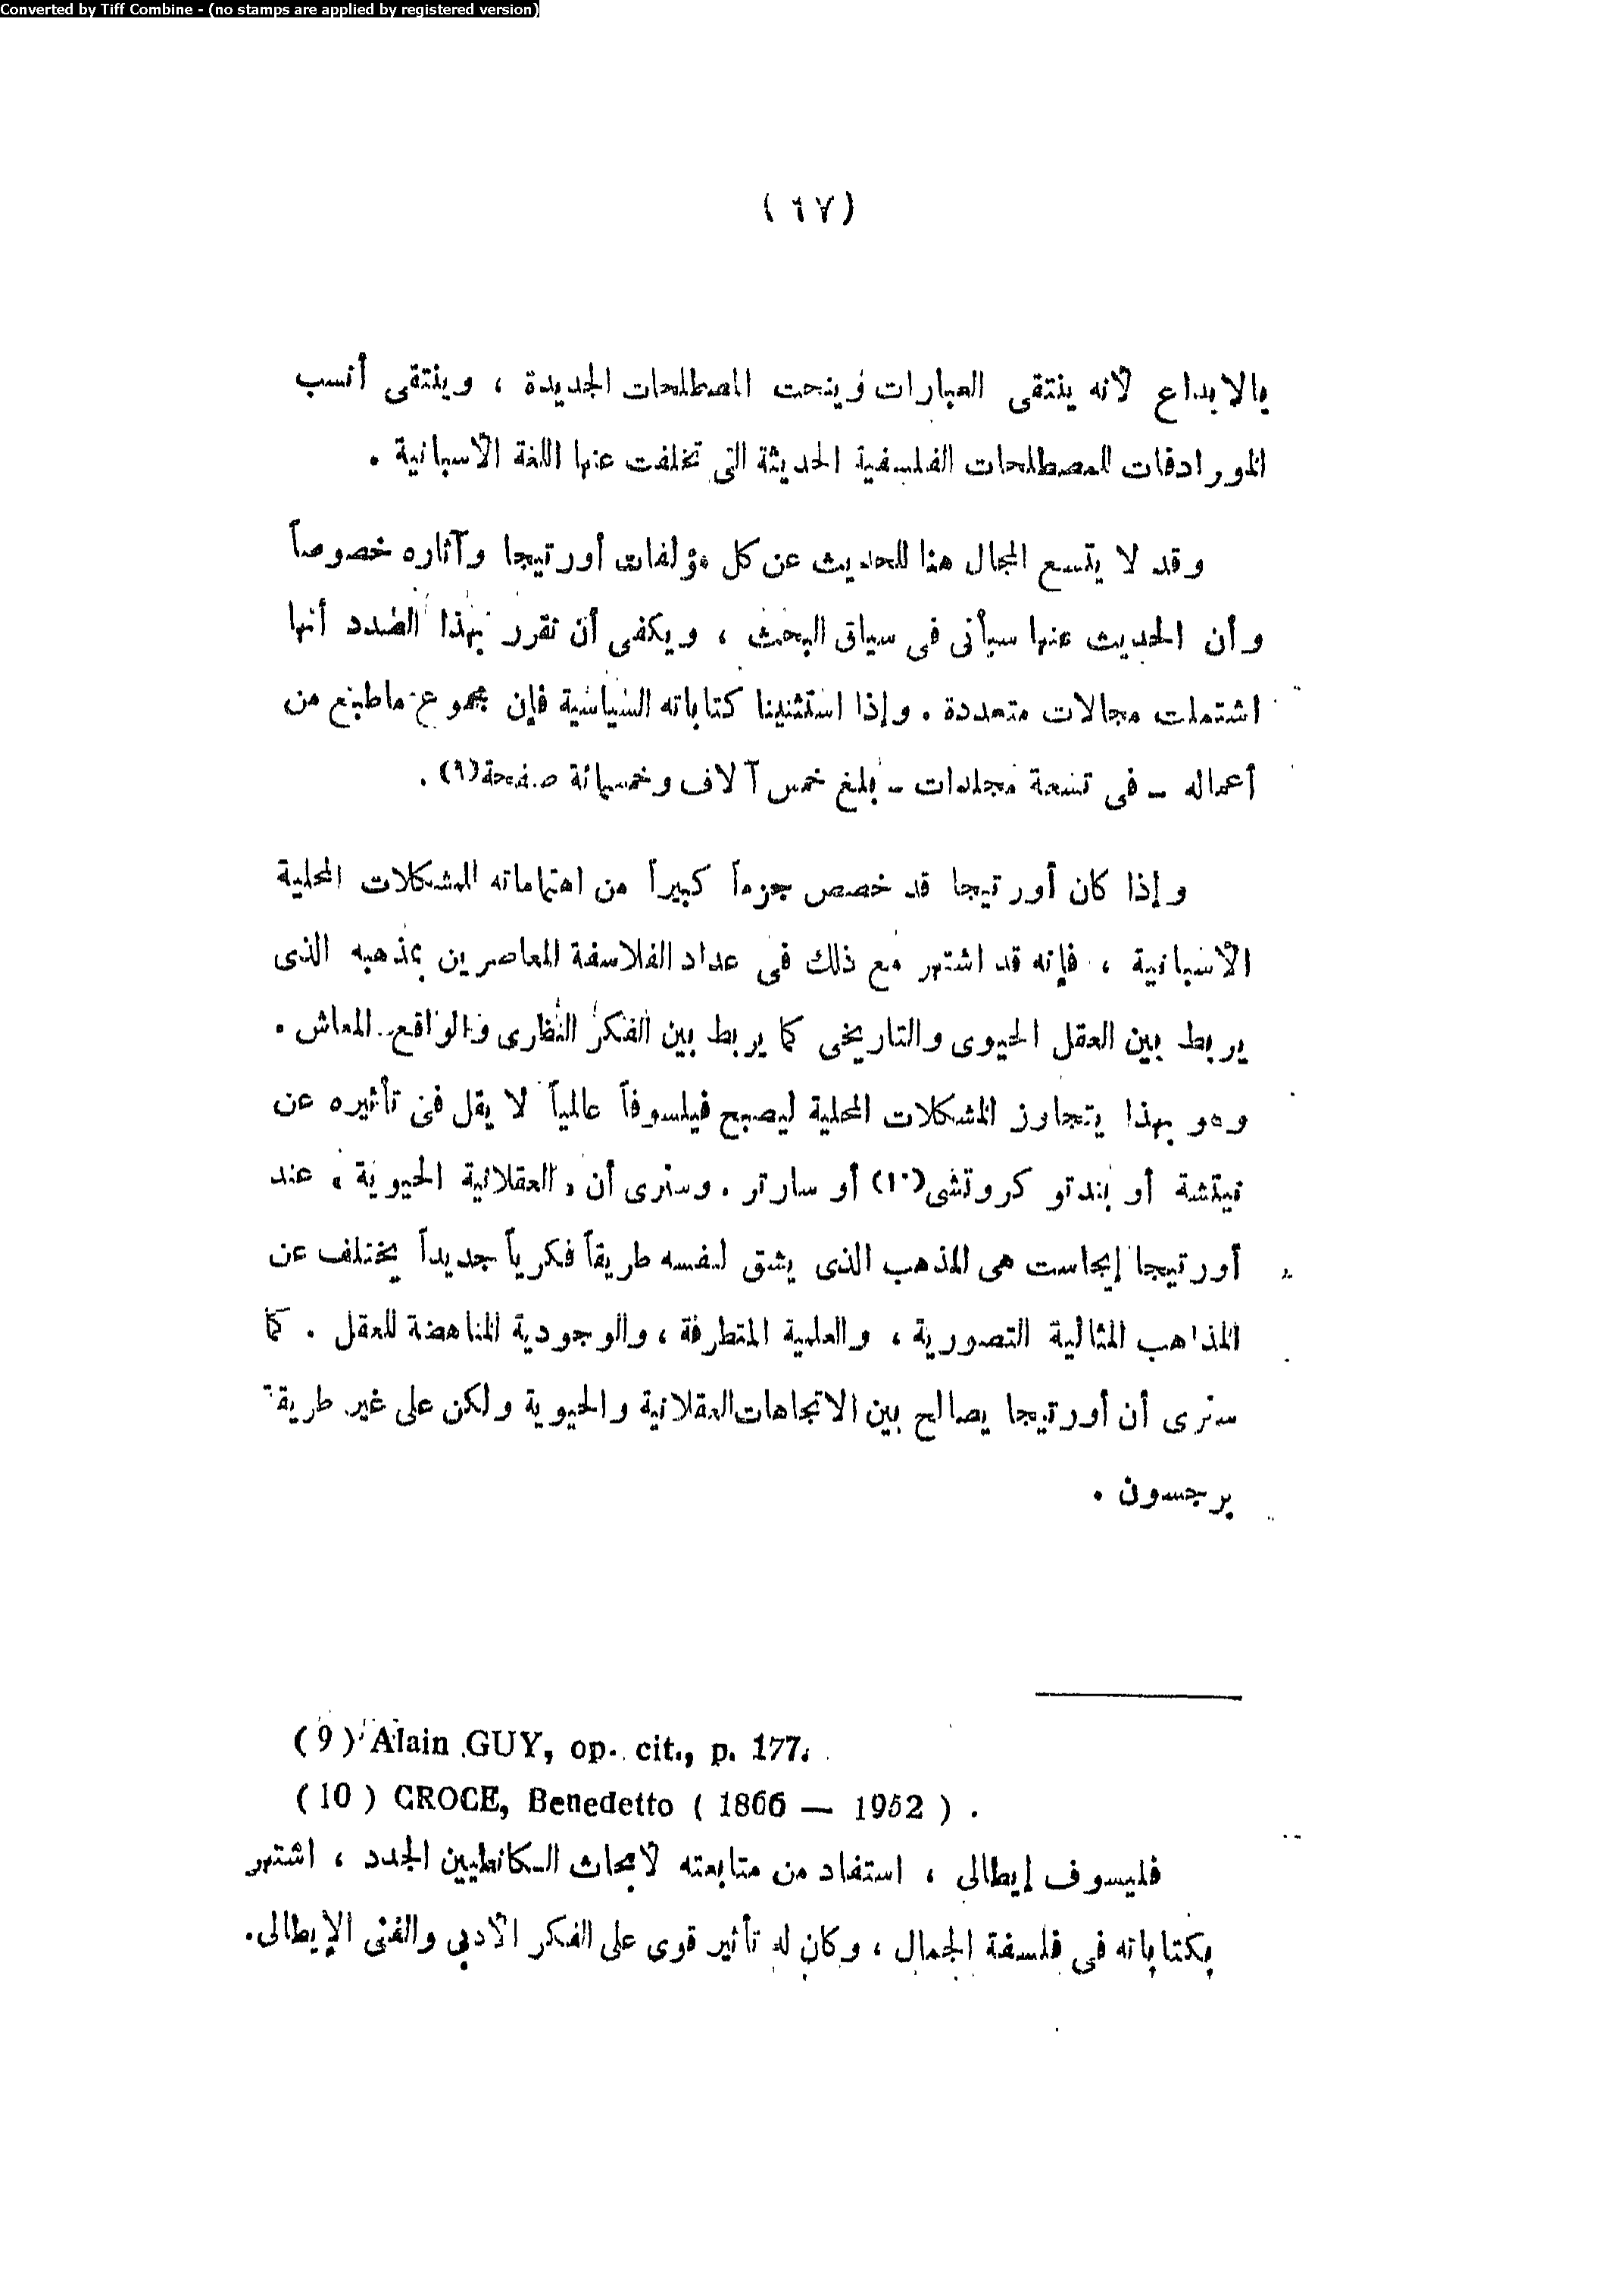 Converted by Tiff Combine - (no stamps are applied by registered version)
( ١٧ )
بالابداع لأنه ينتقى العبارات وينحت المصطلحات الجديدة ، وينتقى أنسب
المورادفات للمصطلحات الفلسفية الحديثة التى تخلفت عنها اللغة الأسبانية .
وقد لا يتسع المجال هنا للحديث عن كل مؤلفات أورتيجا وآثاره خصوصاً
وأن الحديث عنها سيأتى فى سياق البحث ، ويكفى أن نقرر بهذا الصدد أنها
اشتملت مجالات متعددة . وإذا استثنينا كتاباته السياسية فإن مجموع ماطبع من
أعماله – فى تسعة مجلدات – بلغ خمس آلاف وخمسمائة صفحة(٩) .
وإذا كان أورتيجا قد خصص جزءاً كبيراً من اهتماماته للمشكلات المحلية
الأسبانية ، فإنه قد اشتهر مع ذلك فى عداد الفلاسفة المعاصرين بمذهبه الذى
يربط بين العقل الحيوى والتاريخى كما يربط بين الفكر النظرى والواقع المعاش .
وهو بهذا يتجاوز المشكلات المحلية ليصبح فيلسوفاً عالمياً لا يقل فى تأثيره عن
نيتشة أو بندتو كروتشى(١٠) أو سارتر . وسنرى أن « العقلانية الحيوية » عند
أورتيجا إيجاست هى المذهب الذى يشق لنفسه طريقاً فكرياً جديداً يختلف عن
المذاهب المثالية التصورية ، والعلمية المتطرفة ، والوجودية المناهضة للعقل . كما
سنرى أن أورتيجا يصالح بين الاتجاهات العقلانية والحيوية ولكن على غير طريقة
برجسون .
( 9 ) Alain GUY, op. cit., p. 177.
( 10 ) CROCE, Benedetto ( 1866 — 1952 ) .
فليسوف إيطالى ، استفاد من متابعته لأبحاث الكانطيين الجدد ، اشتهر
بكتاباته فى فلسفة الجمال ، وكان له تأثير قوى على الفكر الأدبى والفنى الإيطالى.